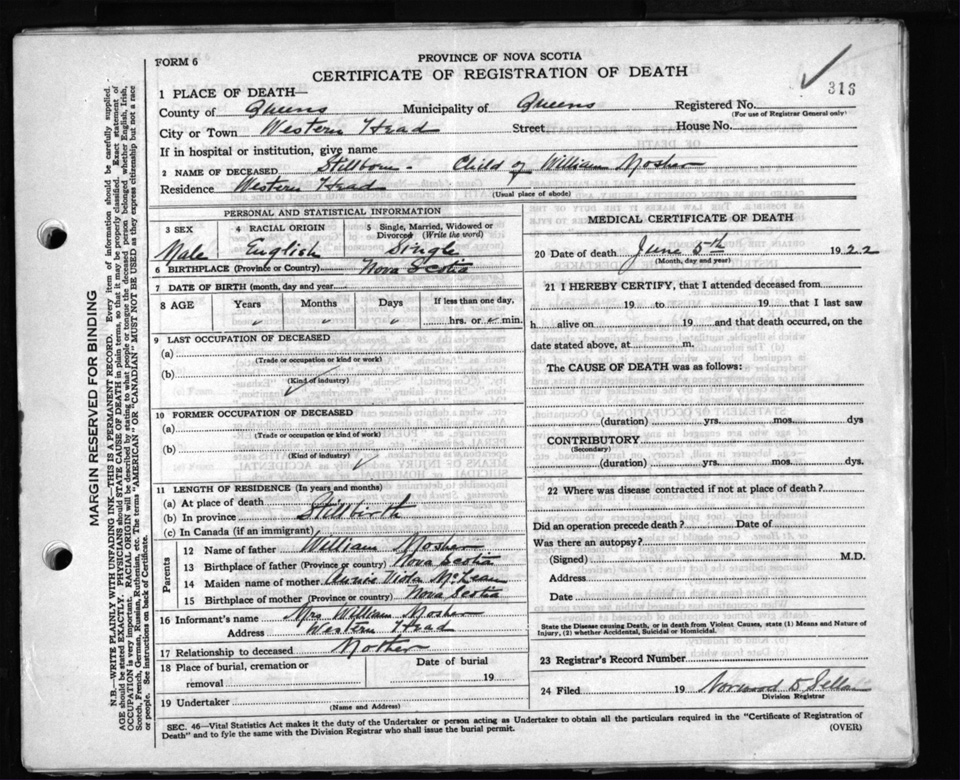 FORM 6
PROVINCE OF NOVA SCOTIA
CERTIFICATE OF REGISTRATION OF DEATH
316
1 PLACE OF DEATH—
County of Queens Municipality of Queens Registered No.
(For use of Registrar General only)
City or Town Western Head Street House No.
If in hospital or institution, give name
2 NAME OF DECEASED Stillborn - Child of William Mosher
Residence Western Head
(Usual place of abode)
PERSONAL AND STATISTICAL INFORMATION
3 SEX
Male
4 RACIAL ORIGIN
English
5 Single, Married, Widowed or
Divorced (Write the word)
Single
6 BIRTHPLACE (Province or Country) Nova Scotia
7 DATE OF BIRTH (month, day and year)
8 AGE Years Months Days If less than one day,
hrs. or min.
9 LAST OCCUPATION OF DECEASED
(a)
(Trade or occupation or kind or work)
(b)
(Kind of industry)
10 FORMER OCCUPATION OF DECEASED
(a)
(Trade or occupation or kind of work)
(b)
(Kind of industry)
11 LENGTH OF RESIDENCE (In years and months)
(a) At place of death
(b) In province Stillbirth
(c) In Canada (if an immigrant)
Parents
12 Name of father William Mosher
13 Birthplace of father (Province or country) Nova Scotia
14 Maiden name of mother Viola McLean
15 Birthplace of mother (Province or country) Nova Scotia
16 Informant's name Mrs William Mosher
Address Western Head
17 Relationship to deceased Mother
18 Place of burial, cremation or
removal
Date of burial
19
19 Undertaker
(Name and Address)
MEDICAL CERTIFICATE OF DEATH
20 Date of death June 5th 1922
(Month, day and year)
21 I HEREBY CERTIFY, that I attended deceased from
19 to 19 that I last saw
h alive on 19 and that death occurred, on the
date stated above, at m.
The CAUSE OF DEATH was as follows:
(duration) yrs. mos. dys
CONTRIBUTORY
(Secondary)
(duration) yrs. mos. dys.
22 Where was disease contracted if not at place of death?
Did an operation precede death? Date of
Was there an autopsy?
(Signed) M.D.
Address
Date
State the Disease causing Death, or in death from Violent Causes, state (1) Means and Nature of
Injury, (2) whether Accidental, Suicidal or Homicidal.
23 Registrar's Record Number
24 Filed 19 Norwood
Division Registrar
SEC. 46—Vital Statistics Act makes it the duty of the Undertaker or person acting as Undertaker to obtain all the particulars required in the "Certificate of Registration of
Death" and to fyle the same with the Division Registrar who shall issue the burial permit.
(OVER)
MARGIN RESERVED FOR BINDING
N.B.—WRITE PLAINLY WITH UNFADING INK—THIS IS A PERMANENT RECORD. Every item of information should be carefully supplied.
AGE should be stated EXACTLY. PHYSICIANS should STATE CAUSE OF DEATH in plain terms, so that it may be properly classified. Exact statement of
OCCUPATION is very important. RACIAL ORIGIN will be described by stating to what people or tongue the deceased person belonged whether English, Irish,
Scotch, French, German, Russian, Ruthenian, etc. The terms "AMERICAN" OR "CANADIAN" MUST NOT BE USED as they express citizenship but not a race
or people. See instructions on back of Certificate.